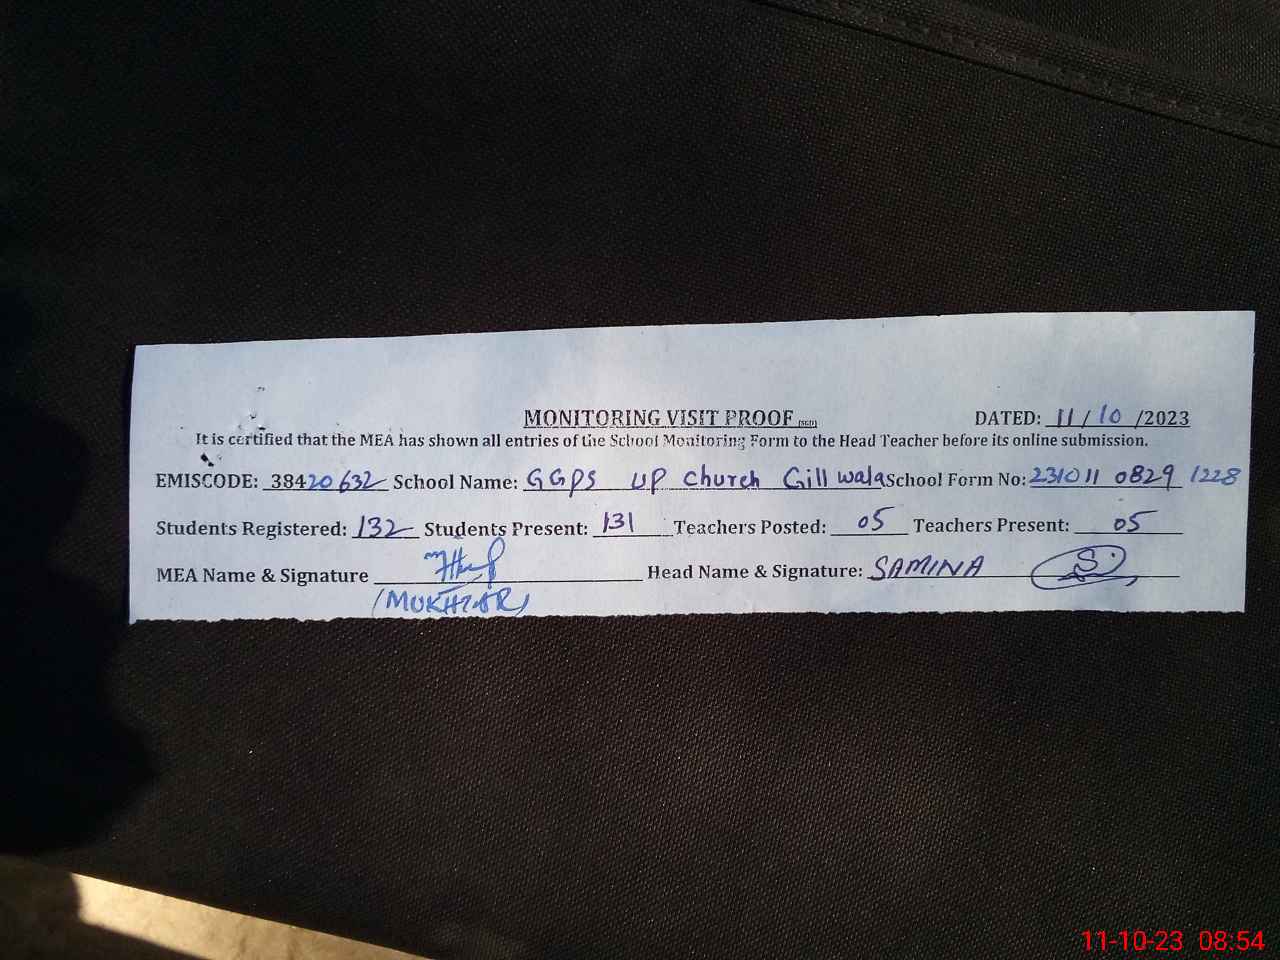 MONITORING VISIT PROOF (SGD) DATED: 11/10/2023
It is certified that the MEA has shown all entries of the School Monitoring Form to the Head Teacher before its online submission.
EMISCODE: 38420632 School Name: GGPS UP Church Gill wala School Form No: 231011 0829 1228
Students Registered: 132 Students Present: 131 Teachers Posted: 05 Teachers Present: 05
MEA Name & Signature Head Name & Signature: SAMINA
(MUKHTAR)
11-10-23 08:54